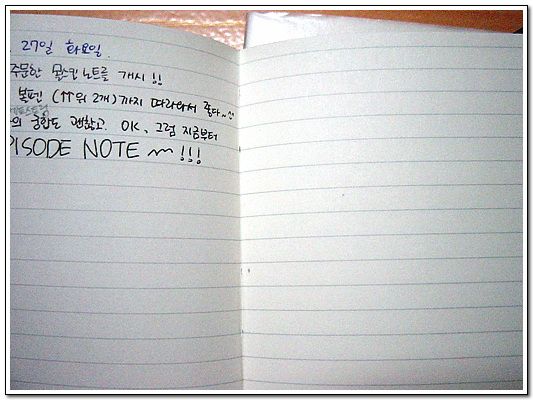 . 27일 화요일.
주문한 몰스킨 노트를 개시 !!
볼펜 (↑↑위 2개)까지 따라와서 좋다~^^
의 궁합도 괜찮고. OK, 그럼 지금부터
PISODE NOTE ~ !!!